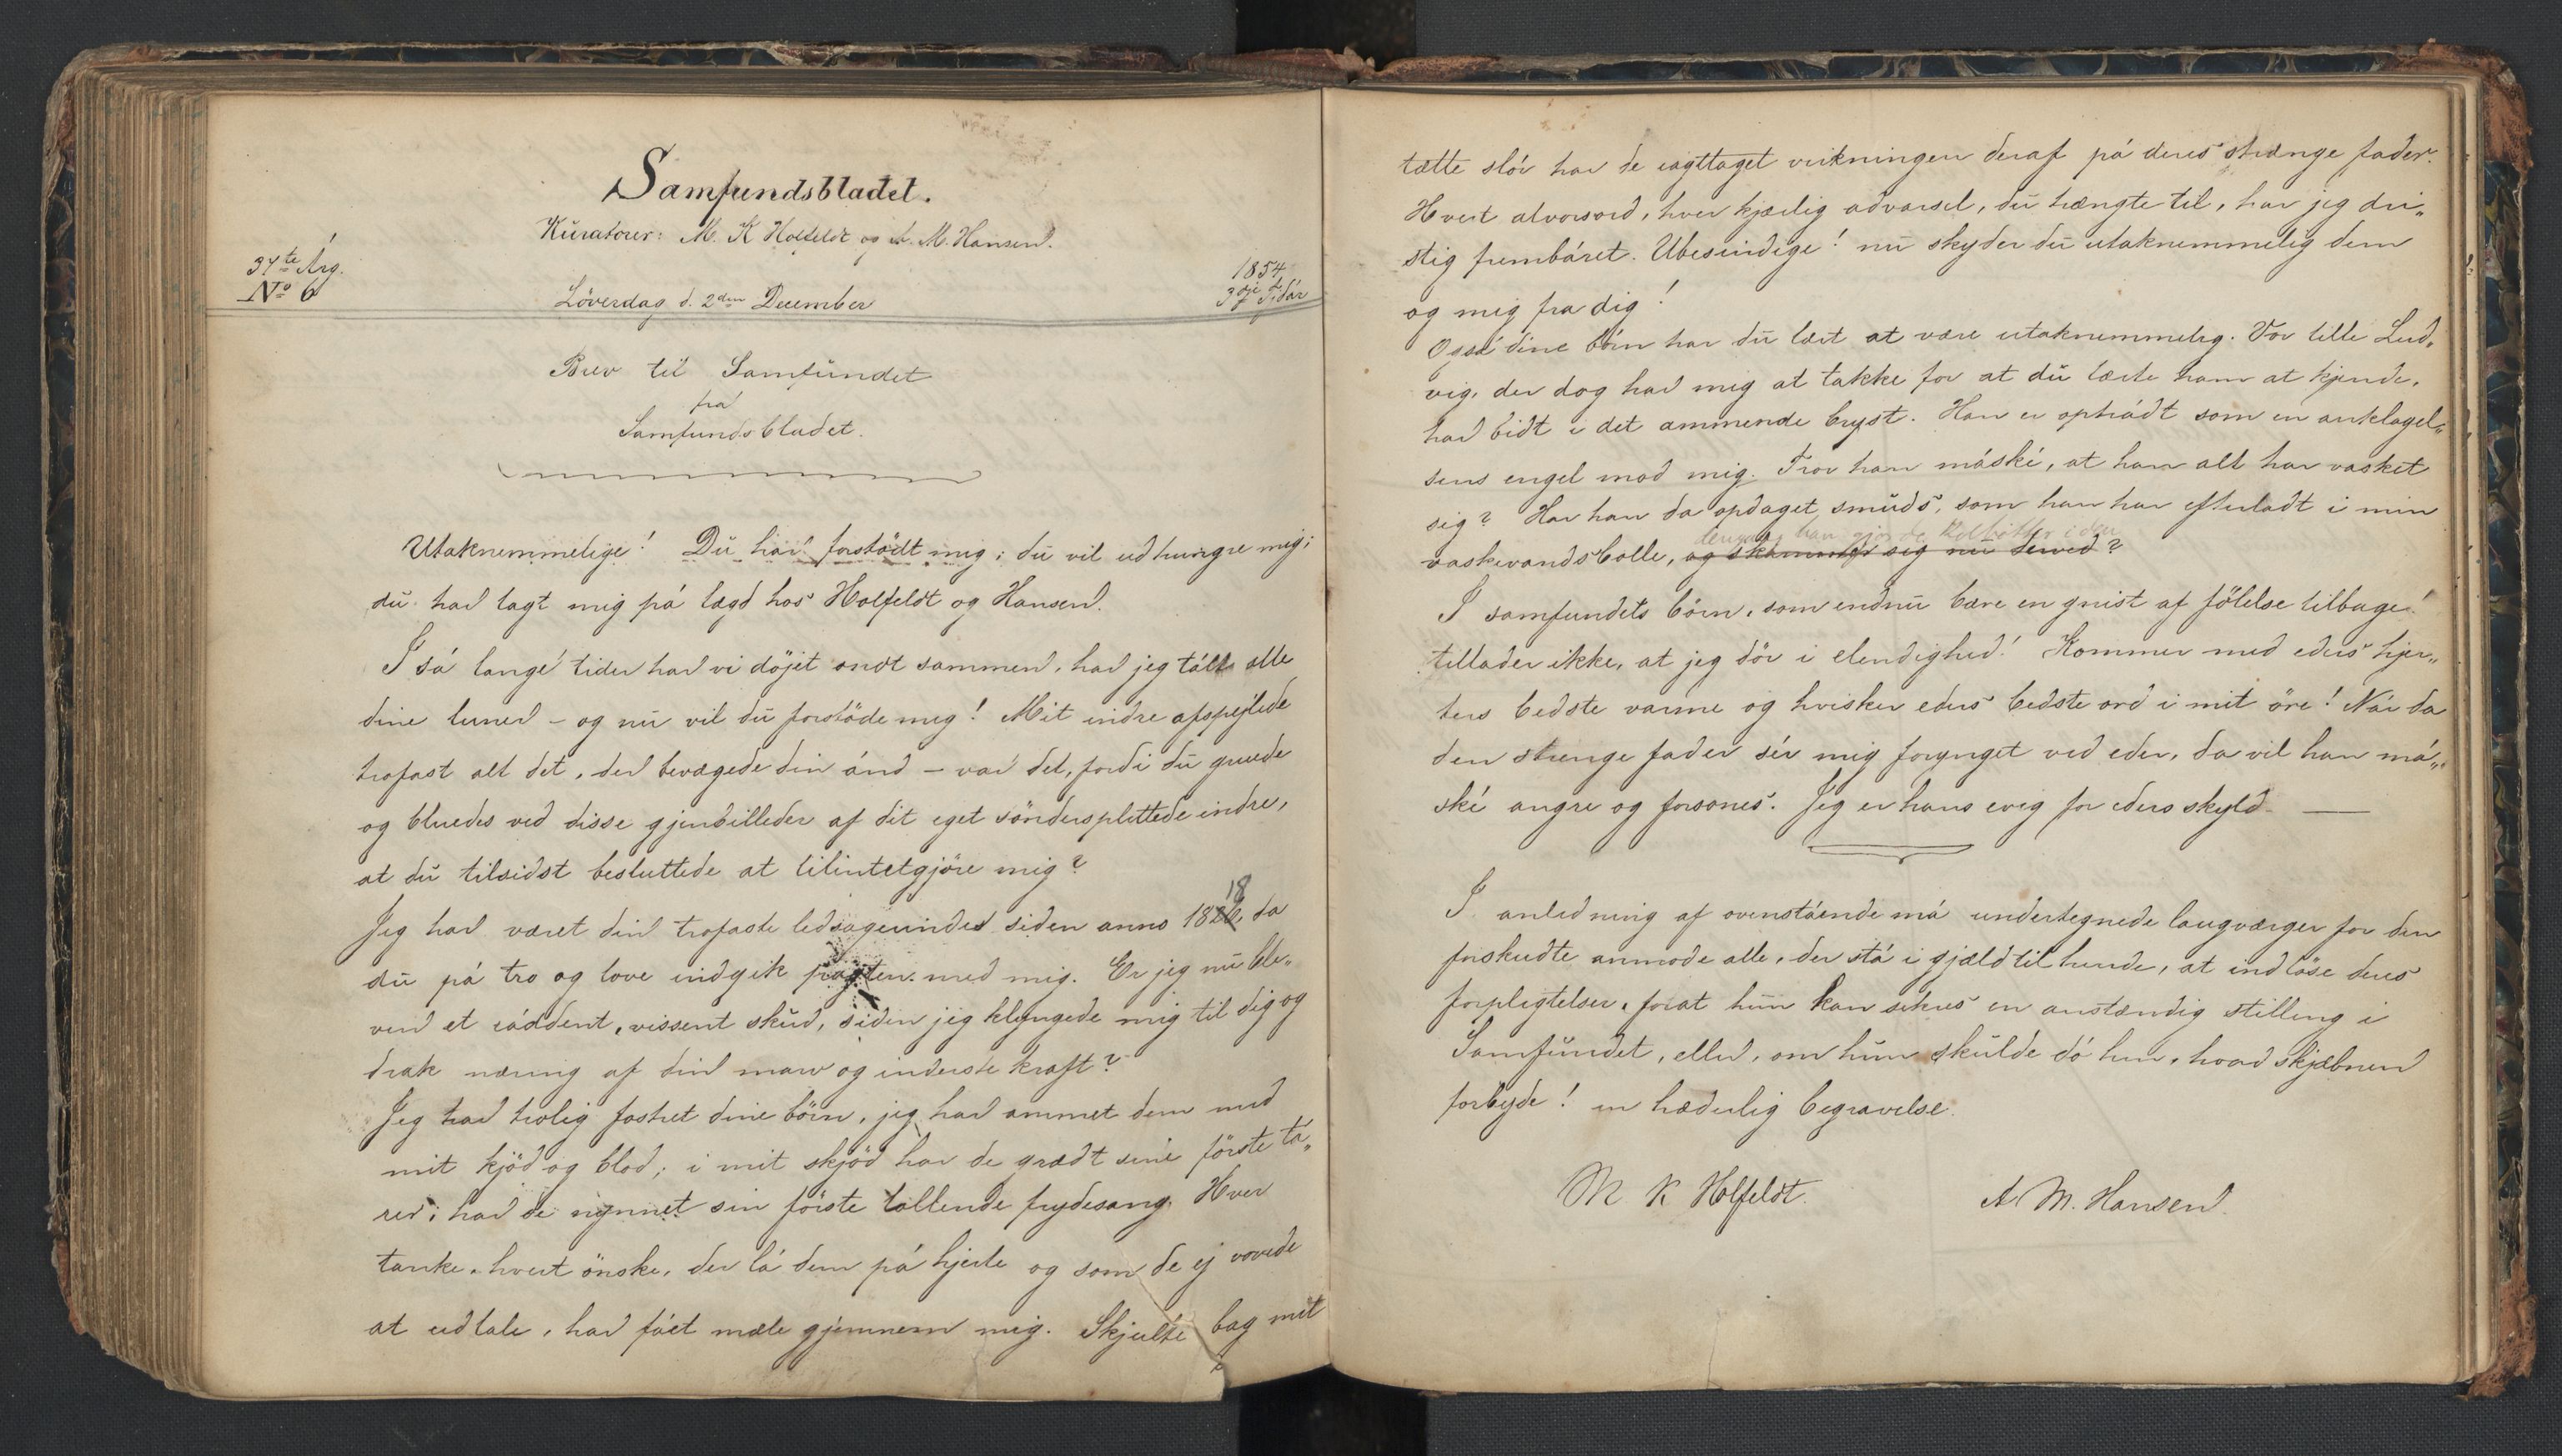 Samfundsbladet.
Kuratorer: M. K Holfeldt og A. M. Hansen.
37te Årg.
No 6
Löverdag d. 2den December
1854
3dje Tidår
Brev til Samfundet
fra
Samfundsbladet.
Utaknemmelige! Du har forstödt mig; du vil udhungre mig;
du har lagt mig på lægd hos Holfeldt og Hansen.
I så lange tider har vi döjet ondt sammen, har jeg tålt alle
dine luner – og nu vil du forstöde mig! Mit indre afspejlede
trofast alt det, der bevægede din ånd – var det, fordi du gruede
og bluedes ved disse gjenbilleder af dit eget söndersplittede indre,
at du tilsidst besluttede at tilintetgjöre mig?
Jeg har været din trofaste ledsagerinde siden anno 1818, da
du på tro og love indgik pagten med mig. Er jeg nu ble„
ven et råddent, vissent skud, siden jeg klyngede mig til dig og
drak næring af din marv og inderste kraft?
Jeg har trolig fostret dine börn, jeg har ammet dem med
mit kjöd og blod; i mit skjöd har de grædt siné förste tå„
rer; har de nynnet sin förste lallende frydesang. Hver
tanke, hvert önske, der lå dem på hjerte og som de ej vovede
at udtale, har fået mæle gjennem mig. Skjulte bag mit
tætte slör har de iagttaget virkningen deraf på deres strænge fader.
Hvert alvorsord, hver kjærlig advarsel, du trængte til, har jeg dri„
stig frembåret. Ubesindige! nu skyder du utaknemmelig dem
og mig fra dig!
Også dine börn har du lært at være utaknemmelig. Vor lille Lud„
vig, der dog har mig at takke for at du lærte ham at kjende,
har bidt i det ammende bryst. Han er optrådt som en anklagel„
sens engel mod mig. Tror han måské, at han alt har vasket
sig? Har han da opdaget smuds, som han har efterladt i min
dengang han gjorde Kolbötter i den
vaskevandsbolle, og skammer sig nu derved?
I samfundets börn, som endnu bære en gnist af fölelse tilbage!
tillader ikke, at jeg dör i elendighed! Kommer med eders hjer„
ters bedste varme og hvisker eders bedste ord i mit öre! Når da
den strenge fader sér mig forynget ved eder, da vil han må„
ské angre og forsones. Jeg er hans evig for eders skyld. —
I anledning af ovenstående må undertegnede laugværger for den
forskudte anmode alle, der stå i gjæld til hende, at indlöse deres
forpligtelser, forat hun kan sikres en anstændig stilling i
Samfundet, eller, om hun skulde dö hen, hvad skjæbnen
forbyde! en hæderlig begravelse.
M K Holfeldt. A. M. Hansen.